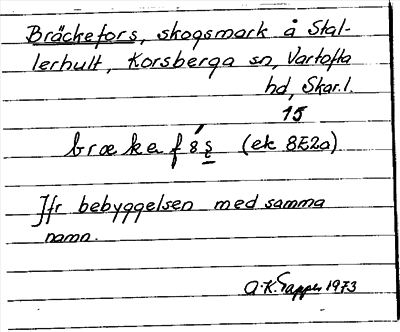 Bräckefors, skogsmark å Stal-
lerhult, Korsberga sn, Vartofta
hd, Skar.l.
15
bræke (ek 8E2a)
Jfr bebyggelsen med samma
namn.
A.K. 1973